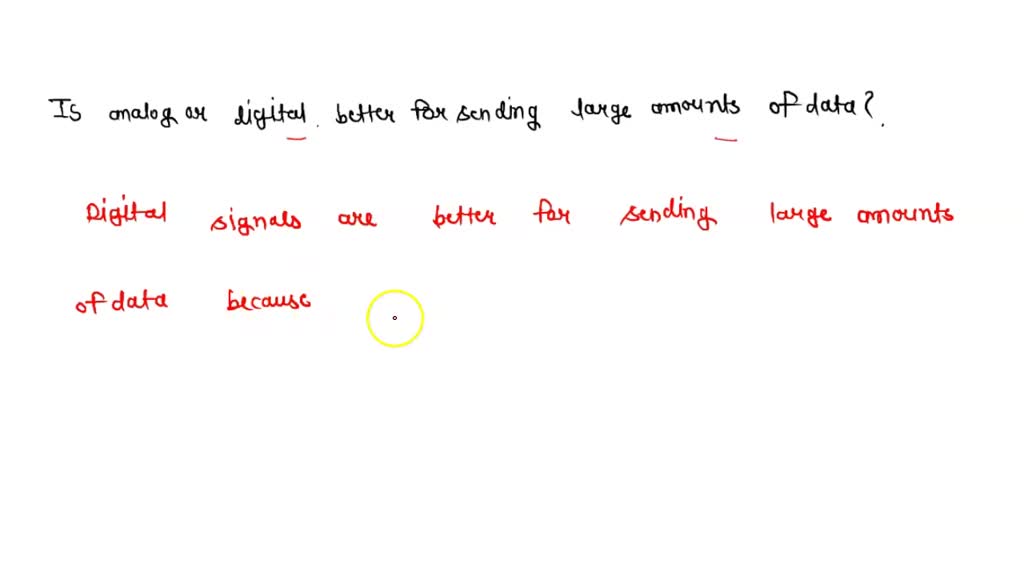 Is analog or digital better for sending large amounts of data?
Digital signals are better for sending large amounts
of data because